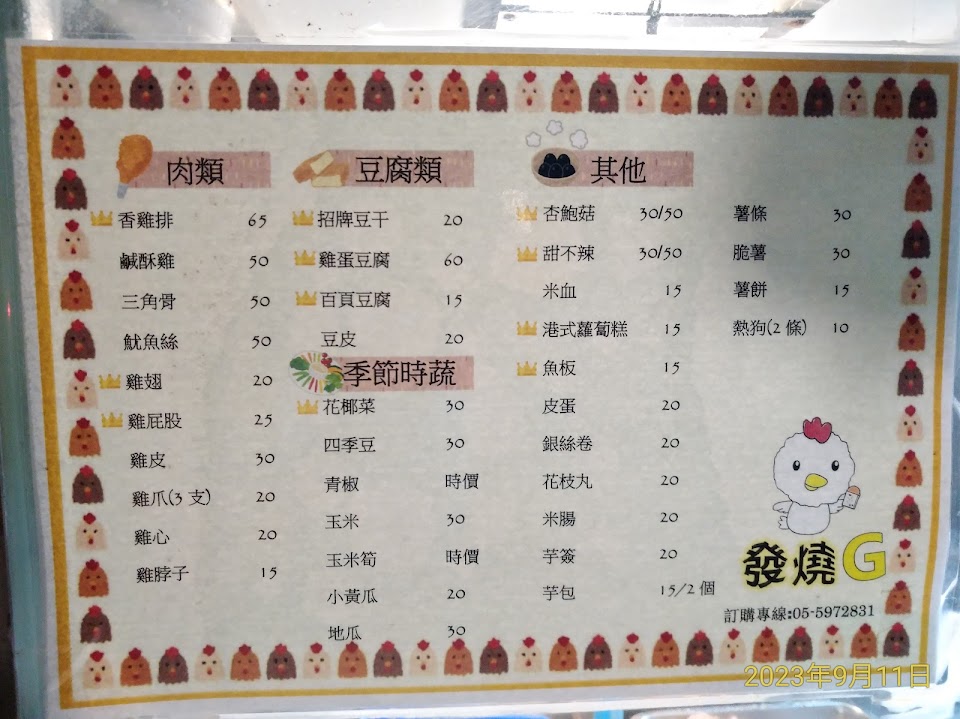 肉類
香雞排 65
鹹酥雞 50
三角骨 50
魷魚絲 50
雞翅 20
雞屁股 25
雞皮 30
雞爪(3 支) 20
雞心 20
雞脖子 15
豆腐類
招牌豆干 20
雞蛋豆腐 60
百頁豆腐 15
豆皮 20
季節時蔬
花椰菜 30
四季豆 30
青椒 時價
玉米 30
玉米筍 時價
小黃瓜 20
地瓜 30
其他
杏鮑菇 30/50
甜不辣 30/50
米血 15
港式蘿蔔糕 15
魚板 15
皮蛋 20
銀絲卷 20
花枝丸 20
米腸 20
芋簽 20
芋包 15/2 個
薯條 30
脆薯 30
薯餅 15
熱狗(2 條) 10
發燒G
訂購專線:05-5972831
2023年9月11日